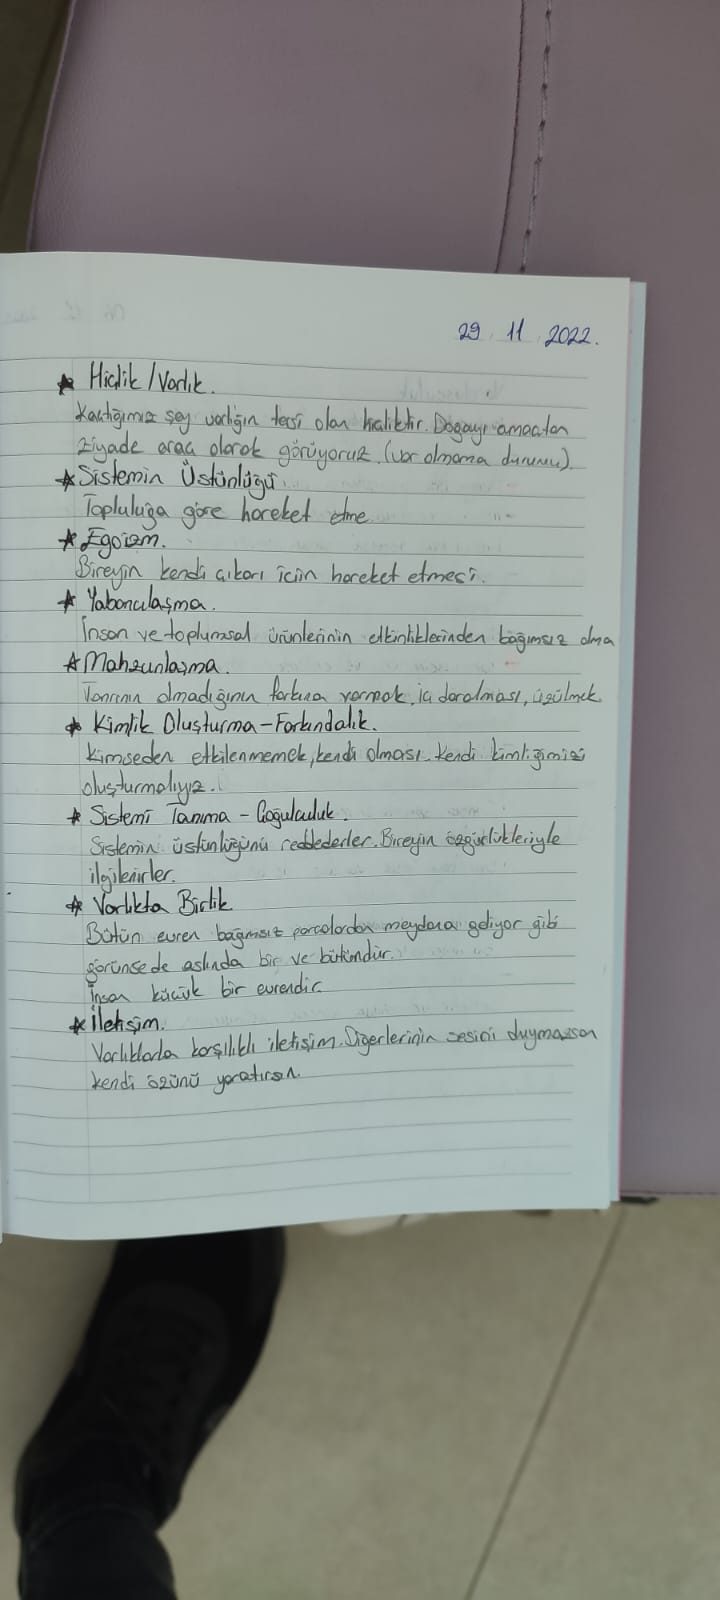 29.11.2022.
★ Hiçlik/Varlık.
Kaçtığımız şey varlığın tersi olan hiçliktir. Doğayı amaçtan
ziyade araç olarak görüyoruz. (var olmama durumu).
★ Sistemin Üstünlüğü.
Topluluğa göre hareket etme
★ Egoizm.
Bireyin kendi çıkarı için hareket etmesi.
★ Yabancılaşma.
İnsan ve toplumsal ürünlerinin etkinliklerinden bağımsız olma
★ Mahzunlaşma.
Tanrının olmadığının farkına varmak, iç daralması, üzülmek.
★ Kimlik Oluşturma-Farkındalık.
Kimseden etkilenmemek, kendi olması. Kendi kimliğimizi
oluşturmalıyız.
★ Sistemi Tanıma - Çoğulculuk.
Sistemin üstünlüğünü reddederler. Bireyin özgürlükleriyle
ilgilenirler.
★ Varlıkta Birlik
Bütün evren bağımsız parçalardan meydana geliyor gibi
görünsede aslında bir ve bütündür.
İnsan küçük bir evrendir
★ İletişim.
Varlıklarla karşılıklı iletişim. Diğerlerinin sesini duymazsan
kendi özünü yaratırsın.